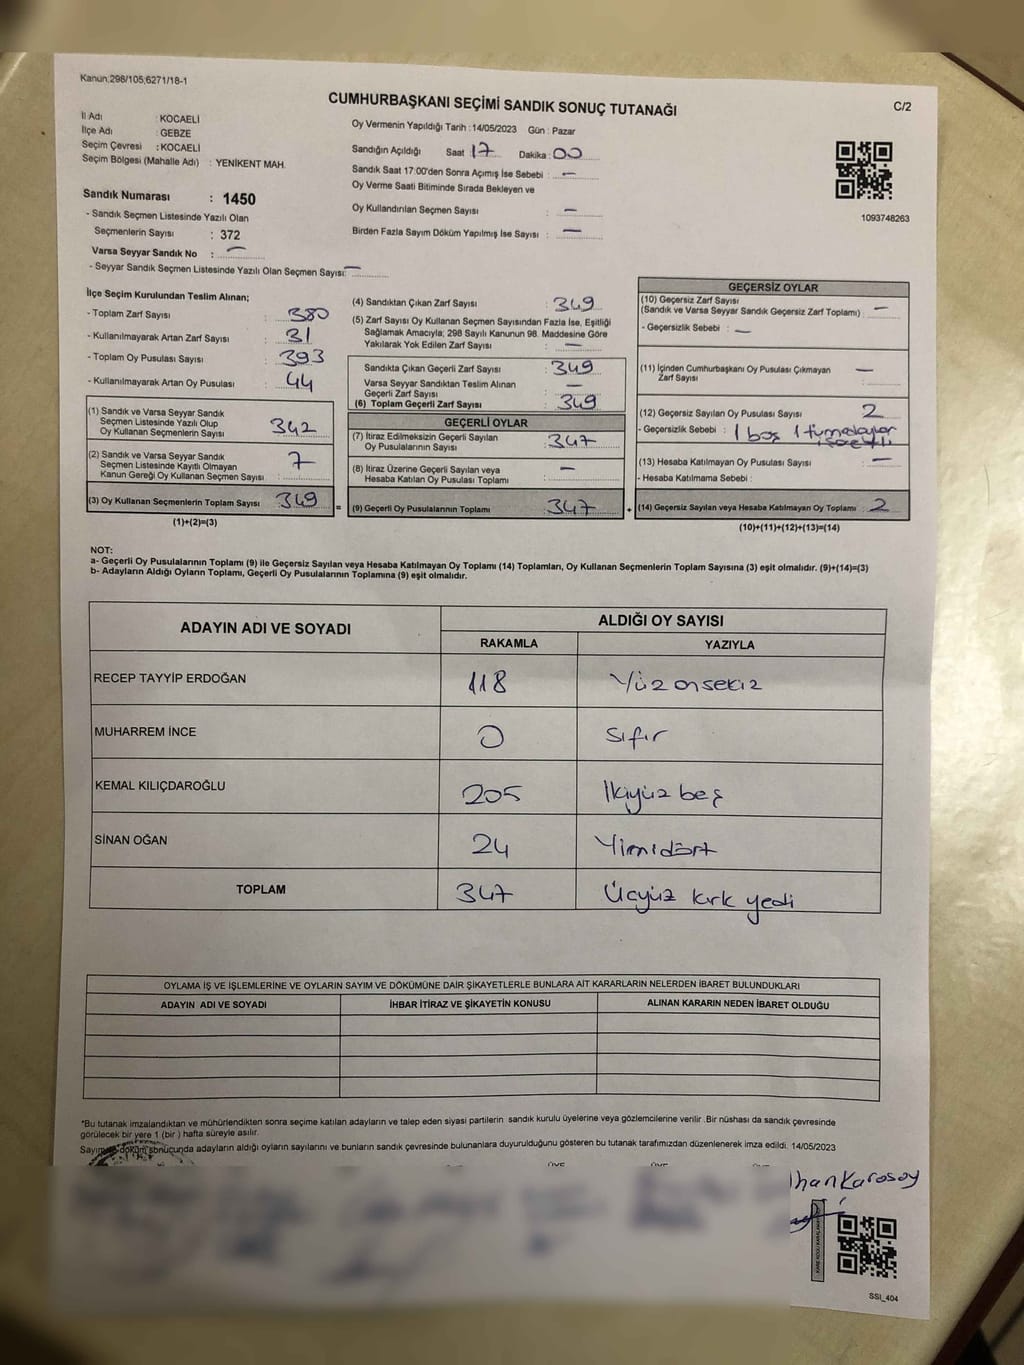 Kanun;298/105;6271/18-1
CUMHURBAŞKANI SEÇİMİ SANDIK SONUÇ TUTANAĞI
C/2
İl Adı : KOCAELİ
İlçe Adı : GEBZE
Seçim Çevresi : KOCAELİ
Seçim Bölgesi (Mahalle Adı) : YENİKENT MAH.
Sandık Numarası : 1450
- Sandık Seçmen Listesinde Yazılı Olan
Seçmenlerin Sayısı : 372
Varsa Seyyar Sandık No : —
- Seyyar Sandık Seçmen Listesinde Yazılı Olan Seçmen Sayısı: —
Oy Vermenin Yapıldığı Tarih : 14/05/2023 Gün : Pazar
Sandığın Açıldığı Saat 17 Dakika : 00
Sandık Saat 17:00'den Sonra Açımış İse Sebebi : —
Oy Verme Saati Bitiminde Sırada Bekleyen ve
Oy Kullandırılan Seçmen Sayısı : —
Birden Fazla Sayım Döküm Yapılmış İse Sayısı : —
1093748263
İlçe Seçim Kurulundan Teslim Alınan;
- Toplam Zarf Sayısı : 380
- Kullanılmayarak Artan Zarf Sayısı : 31
- Toplam Oy Pusulası Sayısı : 393
- Kullanılmayarak Artan Oy Pusulası : 44
(1) Sandık ve Varsa Seyyar Sandık
Seçmen Listesinde Yazılı Olup
Oy Kullanan Seçmenlerin Sayısı : 342
(2) Sandık ve Varsa Seyyar Sandık
Seçmen Listesinde Kayıtlı Olmayan
Kanun Gereği Oy Kullanan Seçmen Sayısı : 7
(3) Oy Kullanan Seçmenlerin Toplam Sayısı : 349
(1)+(2)=(3)
=
(4) Sandıktan Çıkan Zarf Sayısı : 349
(5) Zarf Sayısı Oy Kullanan Seçmen Sayısından Fazla İse, Eşitliği
Sağlamak Amacıyla; 298 Sayılı Kanunun 98. Maddesine Göre
Yakılarak Yok Edilen Zarf Sayısı : —
Sandıkta Çıkan Geçerli Zarf Sayısı : 349
Varsa Seyyar Sandıktan Teslim Alınan
Geçerli Zarf Sayısı : —
(6) Toplam Geçerli Zarf Sayısı : 349
GEÇERLİ OYLAR
(7) İtiraz Edilmeksizin Geçerli Sayılan
Oy Pusulalarının Sayısı : 347
(8) İtiraz Üzerine Geçerli Sayılan veya
Hesaba Katılan Oy Pusulası Toplamı : —
(9) Geçerli Oy Pusulalarının Toplamı : 347
+
GEÇERSİZ OYLAR
(10) Geçersiz Zarf Sayısı
(Sandık ve Varsa Seyyar Sandık Geçersiz Zarf Toplamı) : —
- Geçersizlik Sebebi : —
(11) İçinden Cumhurbaşkanı Oy Pusulası Çıkmayan
Zarf Sayısı : —
(12) Geçersiz Sayılan Oy Pusulası Sayısı : 2
- Geçersizlik Sebebi : 1 boş 1 tüm adaylar
(13) Hesaba Katılmayan Oy Pusulası Sayısı : —
- Hesaba Katılmama Sebebi :
(14) Geçersiz Sayılan veya Hesaba Katılmayan Oy Toplamı : 2
(10)+(11)+(12)+(13)=(14)
NOT:
a- Geçerli Oy Pusulalarının Toplamı (9) ile Geçersiz Sayılan veya Hesaba Katılmayan Oy Toplamı (14) Toplamları, Oy Kullanan Seçmenlerin Toplam Sayısına (3) eşit olmalıdır. (9)+(14)=(3)
b- Adayların Aldığı Oyların Toplamı, Geçerli Oy Pusulalarının Toplamına (9) eşit olmalıdır.
ADAYIN ADI VE SOYADI
ALDIĞI OY SAYISI
RAKAMLA YAZIYLA
RECEP TAYYİP ERDOĞAN 118 Yüz onsekiz
MUHARREM İNCE 0 Sıfır
KEMAL KILIÇDAROĞLU 205 İkiyüz beş
SİNAN OĞAN 24 Yirmidört
TOPLAM 347 Üçyüz kırk yedi
OYLAMA İŞ VE İŞLEMLERİNE VE OYLARIN SAYIM VE DÖKÜMÜNE DAİR ŞİKAYETLERLE BUNLARA AİT KARARLARIN NELERDEN İBARET BULUNDUKLARI
ADAYIN ADI VE SOYADI İHBAR İTİRAZ VE ŞİKAYETİN KONUSU ALINAN KARARIN NEDEN İBARET OLDUĞU
*Bu tutanak imzalandıktan ve mühürlendikten sonra seçime katılan adayların ve talep eden siyasi partilerin sandık kurulu üyelerine veya gözlemcilerine verilir. Bir nüshası da sandık çevresinde
görülecek bir yere 1 (bir) hafta süreyle asılır.
Sayım ve döküm sonucunda adayların aldığı oyların sayılarını ve bunların sandık çevresinde bulunanlara duyurulduğunu gösteren bu tutanak tarafımızdan düzenlenerek imza edildi. 14/05/2023
han Karasoy
SSI_404